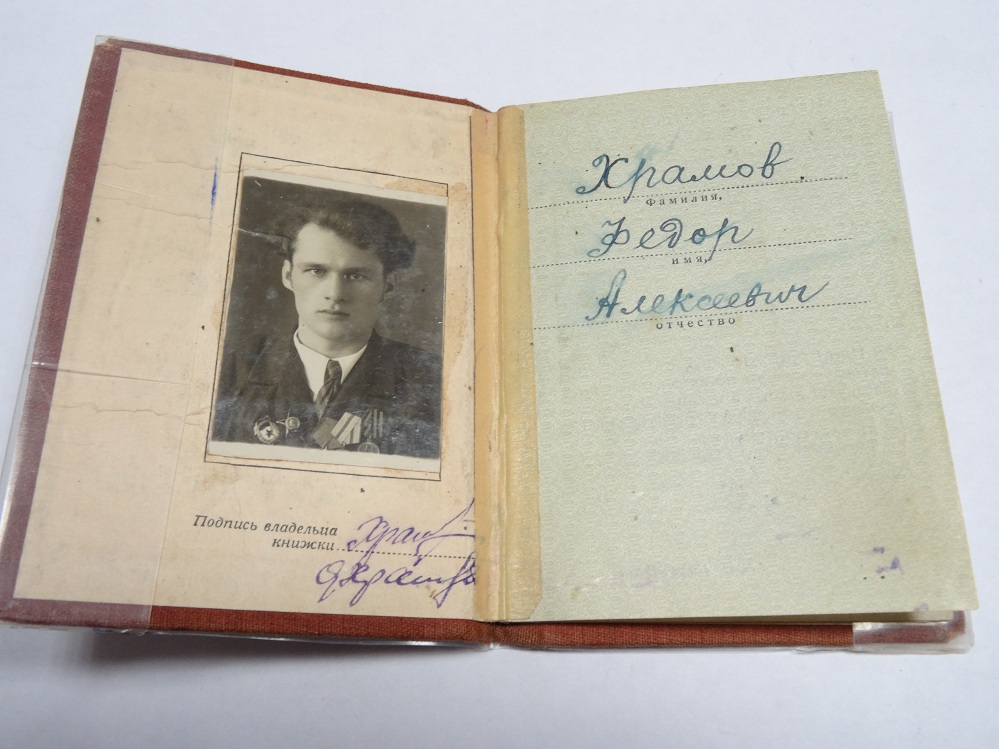 Подпись владельца
книжки
Храмов
фамилия,
Федор
имя,
Алексеевич
отчество